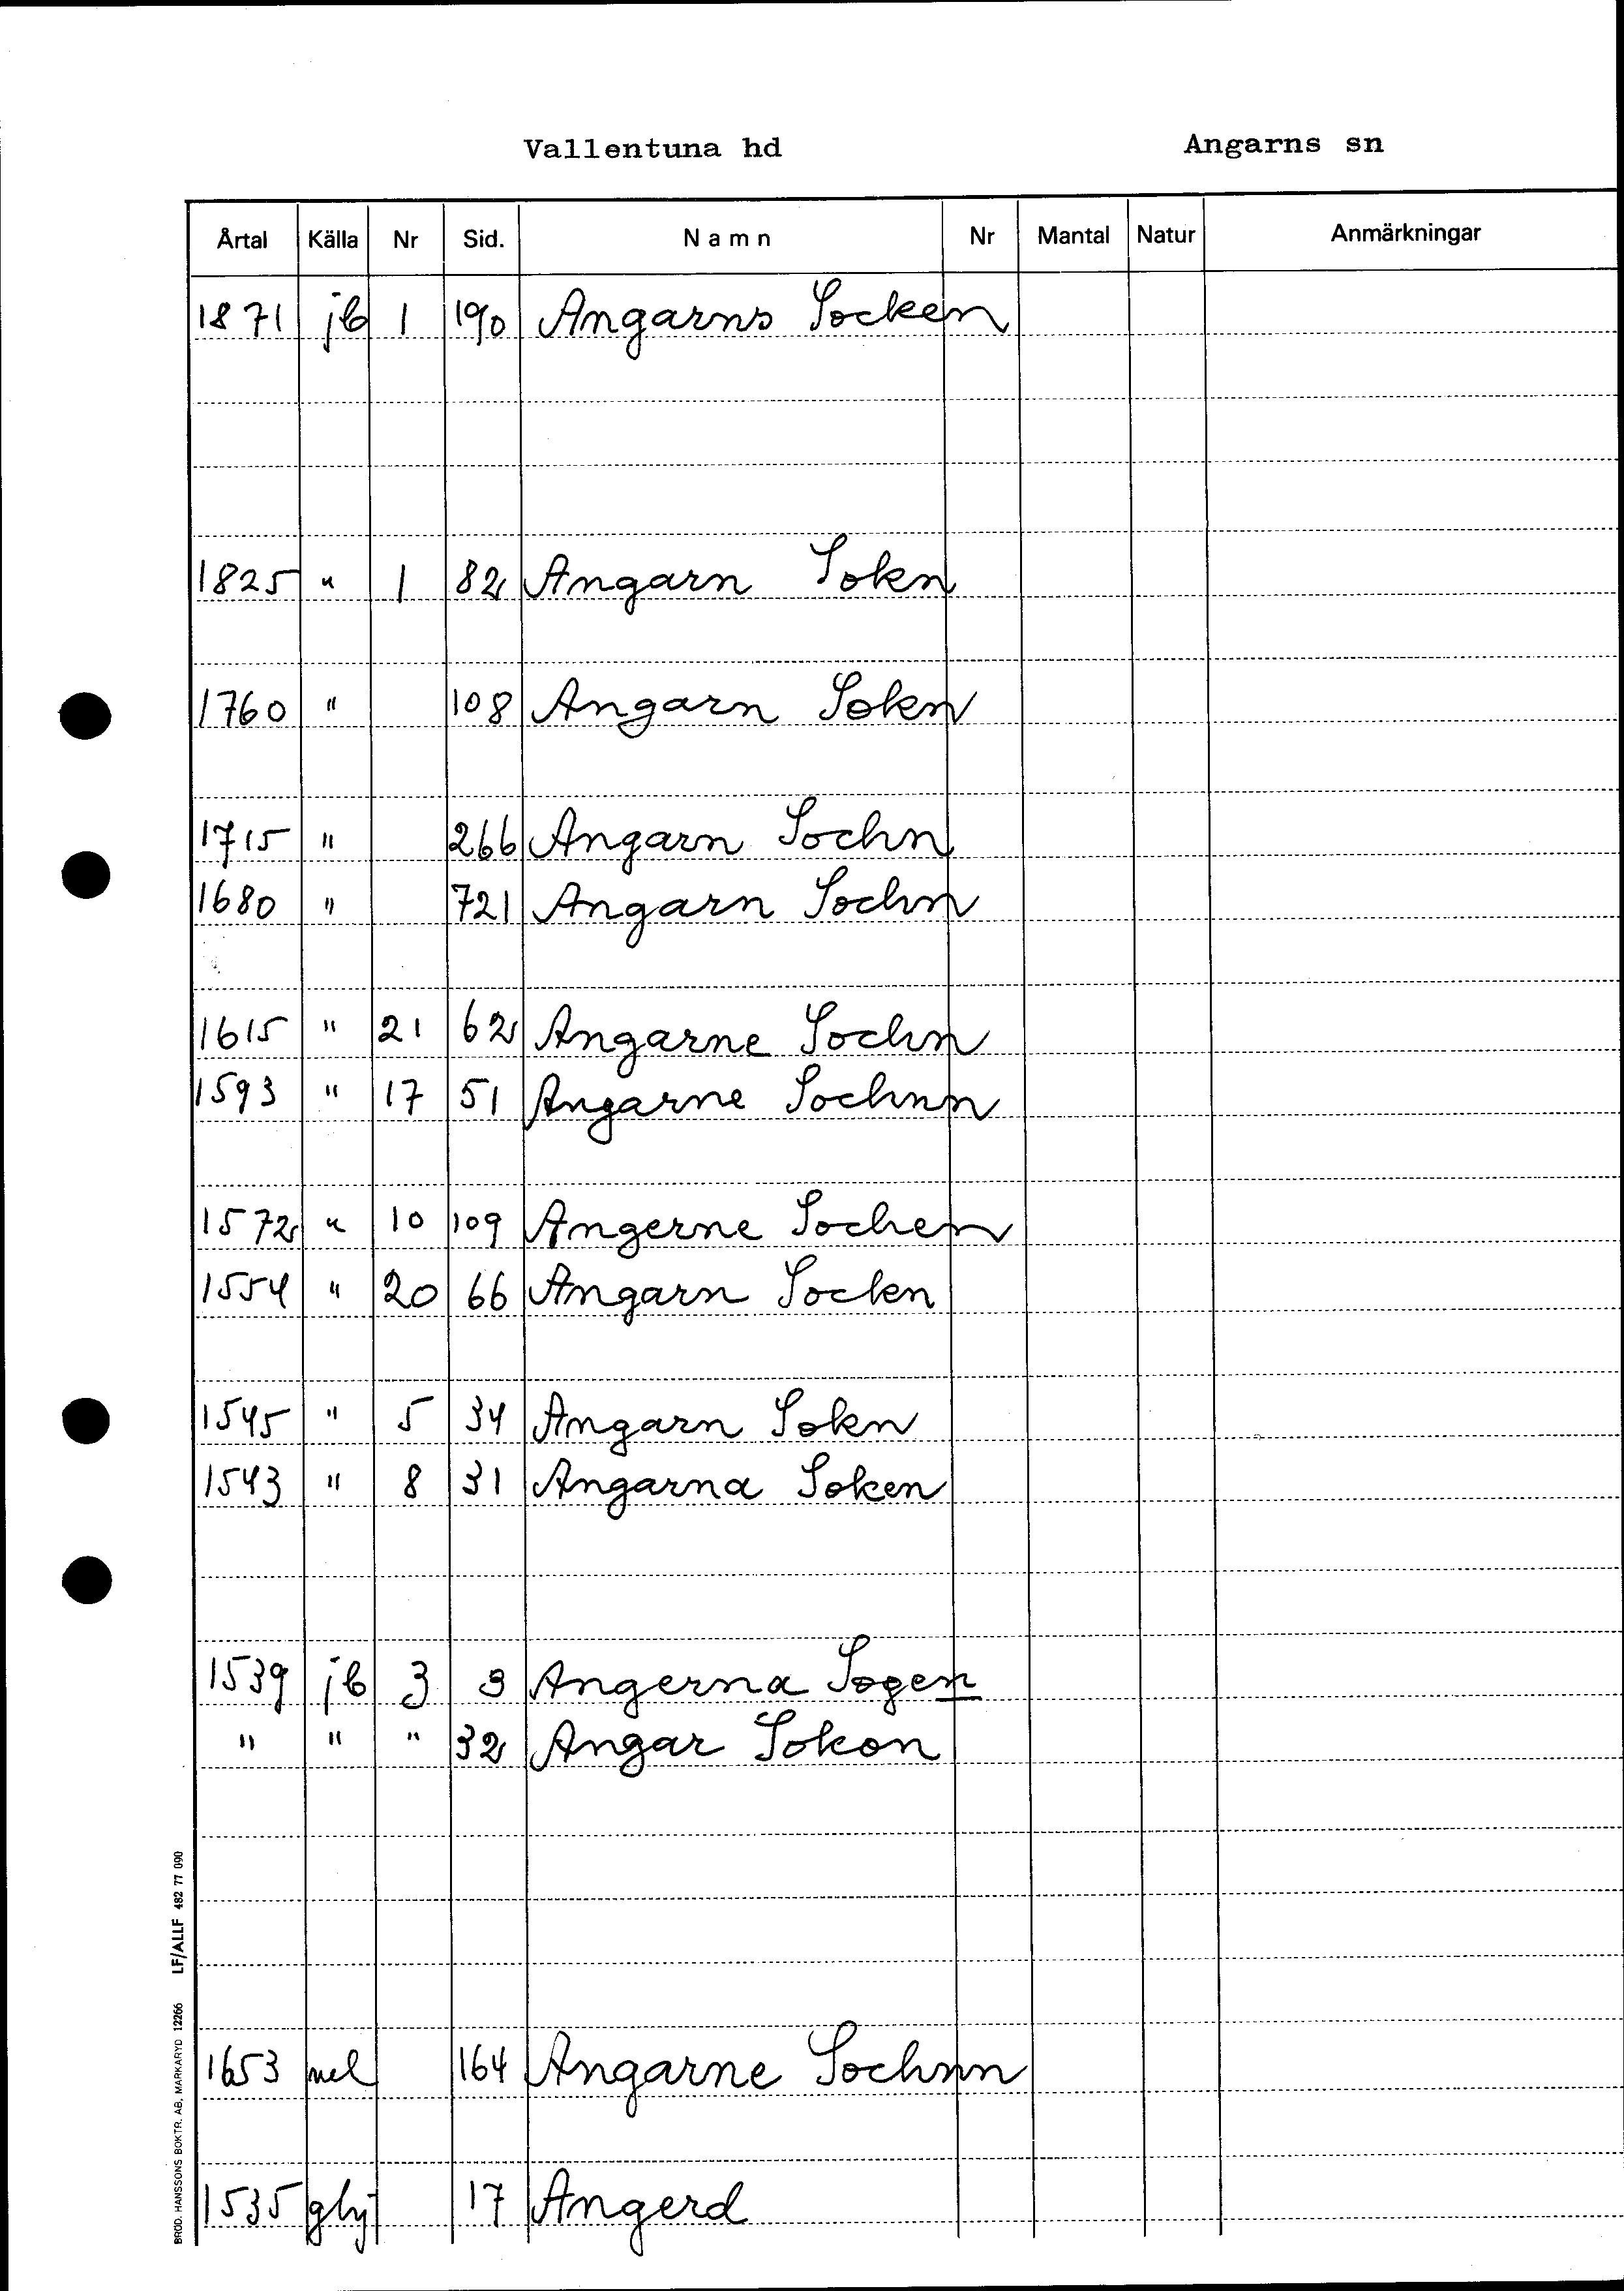 Vallentuna hd Angarns sn
Årtal Källa Nr Sid. Namn Nr Mantal Natur Anmärkningar
1871 jb 1 190 Angarns Socken
1825 " 1 82 Angarn Sokn
1760 " 108 Angarn Sokn
1715 " 266 Angarn Sochn
1680 " 721 Angarn Sochn
1615 " 21 62 Angarne Sochn
1593 " 17 51 Angarne Sochnn
1572 " 10 109 Angerne Sochen
1554 " 20 66 Angarn Sockn
1545 " 5 34 Angarn Sokn
1543 " 8 31 Angarna Soken
1539 jb 3 3 Angerna Sogen
" " " 32 Angar Sokon
1653 mel 164 Angarne Sochnn
1535 ghj 17 Angerd
BRÖD. HANSSONS BOKTR. AB, MARKARYD 12266 LF/ALLF 482 77 090